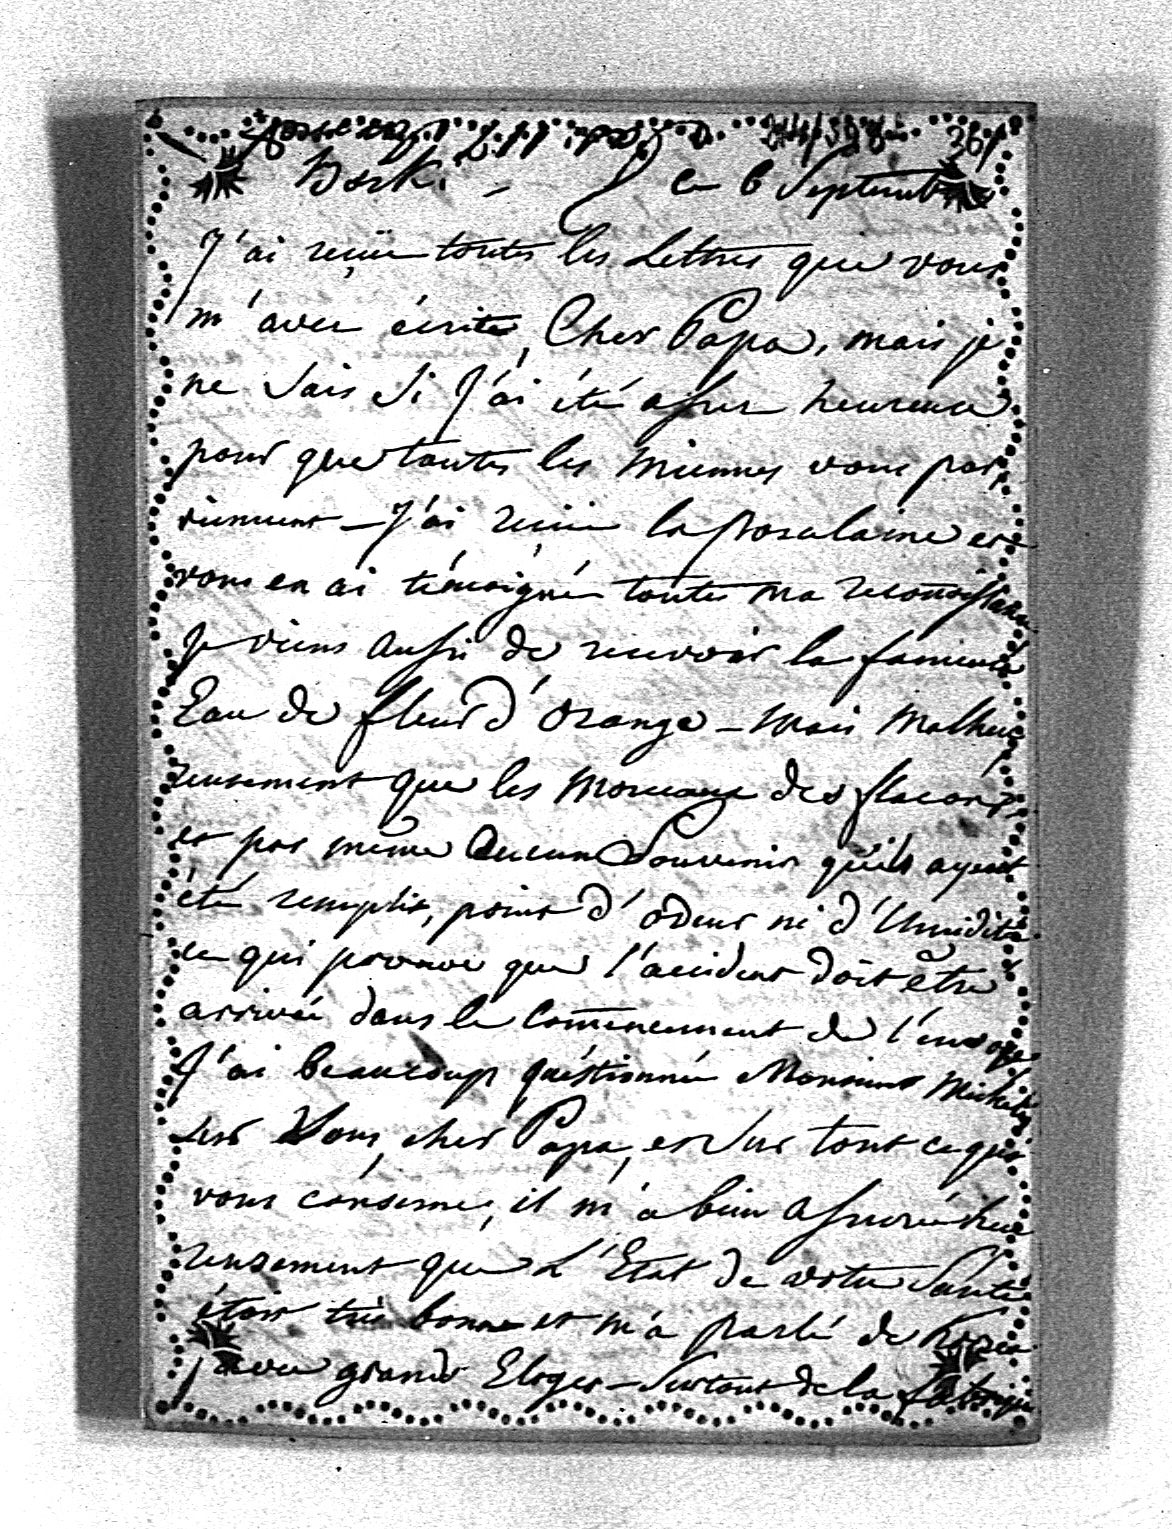 Borki - ce 6 Septembre
J'ai reçüe toutes les Lettres que vous
m'avez écrites, Cher Papa, mais je
ne sais si J'ai été assez heureuse
pour que toutes les miennes vous par,
viennent - J'ai reçüe la Porcelaine et
vous en ai témoignée toutes ma reconoissance
je viens aussi de recevoir la fameuse
Eau de fleur d'orange - mais Malheu,
reusement que les Morceaux des flacons
et pas même aucun Souvenir qu'ils ayent
été remplis, point d'odeur ni d'Umidité
ce qui prouve que l'accident doit être
arrivée dans le comencement de l'envoye
J'ai beaucoup quéstionnée Monsieur
sur Vous, cher Papa, et sur tout ce qui
vous conserne, il m'a bien assurée heu
reusement que L'Etat de votre Santé
étoit très bonne et m'a parlé de
avec grands Eloges - Surtout de la fabrique